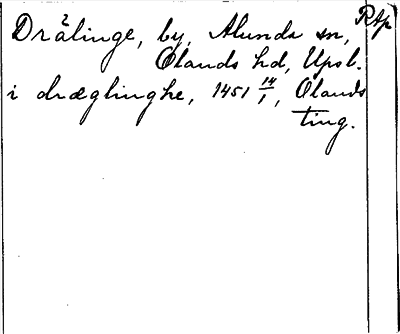 Drälinge, by, Alunda sn, Rap
Olands hd, Upsl.
i dræglinghe, 1451 14/1, Olands
ting.